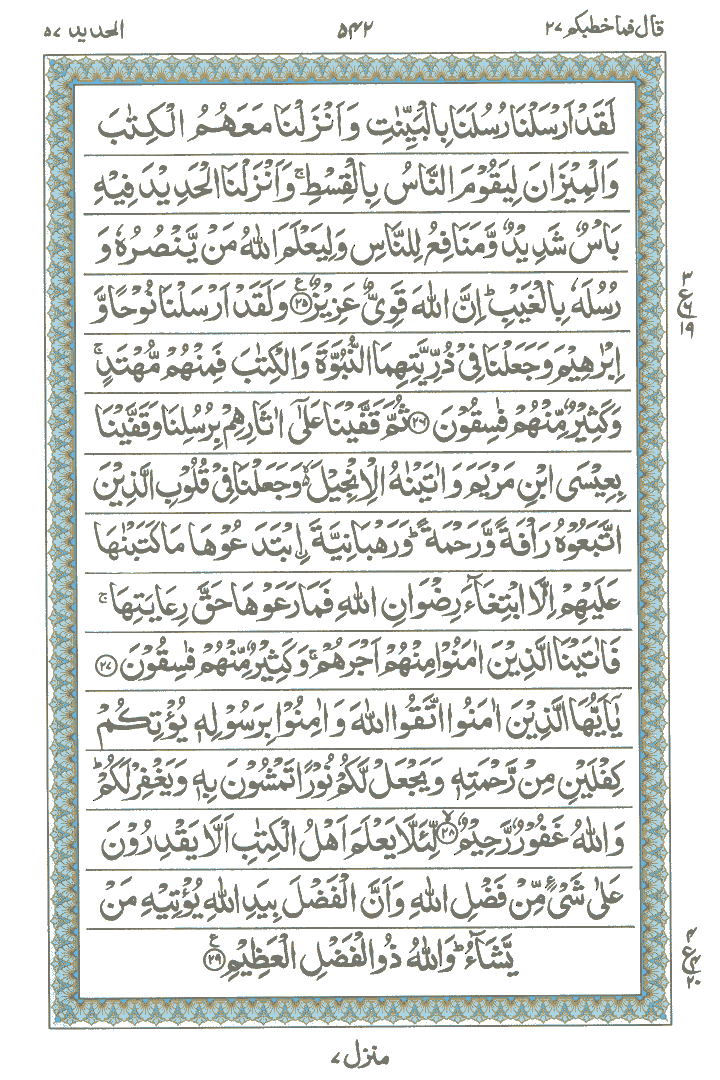 قال فما خطبکم ۲۷
۵۴۲
الحدید ۵۷
لَقَدْ اَرْسَلْنَا رُسُلَنَا بِالْبَیِّنٰتِ وَ اَنْزَلْنَا مَعَهُمُ الْكِتٰبَ
وَالْمِیْزَانَ لِیَقُوْمَ النَّاسُ بِالْقِسْطِ ۚ وَ اَنْزَلْنَا الْحَدِیْدَ فِیْهِ
بَاْسٌ شَدِیْدٌ وَّ مَنَافِعُ لِلنَّاسِ وَ لِیَعْلَمَ اللّٰهُ مَنْ یَّنْصُرُهٗ وَ
رُسُلَهٗ بِالْغَیْبِ ؕ اِنَّ اللّٰهَ قَوِیٌّ عَزِیْزٌ ﴿۲۵﴾ وَ لَقَدْ اَرْسَلْنَا نُوْحًا وَّ
اِبْرٰهِیْمَ وَ جَعَلْنَا فِیْ ذُرِّیَّتِهِمَا النُّبُوَّةَ وَ الْكِتٰبَ فَمِنْهُمْ مُّهْتَدٍ ۚ
وَ كَثِیْرٌ مِّنْهُمْ فٰسِقُوْنَ ﴿۲۶﴾ ثُمَّ قَفَّیْنَا عَلٰۤی اٰثَارِهِمْ بِرُسُلِنَا وَ قَفَّیْنَا
بِعِیْسَی ابْنِ مَرْیَمَ وَ اٰتَیْنٰهُ الْاِنْجِیْلَ ۙ۬ وَ جَعَلْنَا فِیْ قُلُوْبِ الَّذِیْنَ
اتَّبَعُوْهُ رَاْفَةً وَّ رَحْمَةً ؕ وَ رَهْبَانِیَّةَ ِ۟ابْتَدَعُوْهَا مَا كَتَبْنٰهَا
عَلَیْهِمْ اِلَّا ابْتِغَآءَ رِضْوَانِ اللّٰهِ فَمَا رَعَوْهَا حَقَّ رِعَایَتِهَا ۚ
فَاٰتَیْنَا الَّذِیْنَ اٰمَنُوْا مِنْهُمْ اَجْرَهُمْ ۚ وَ كَثِیْرٌ مِّنْهُمْ فٰسِقُوْنَ ﴿۲۷﴾
یٰۤاَیُّهَا الَّذِیْنَ اٰمَنُوا اتَّقُوا اللّٰهَ وَ اٰمِنُوْا بِرَسُوْلِهٖ یُؤْتِكُمْ
كِفْلَیْنِ مِنْ رَّحْمَتِهٖ وَ یَجْعَلْ لَّكُمْ نُوْرًا تَمْشُوْنَ بِهٖ وَ یَغْفِرْ لَكُمْ ؕ
وَ اللّٰهُ غَفُوْرٌ رَّحِیْمٌ ﴿۲۸﴾ۙ لِّئَلَّا یَعْلَمَ اَهْلُ الْكِتٰبِ اَلَّا یَقْدِرُوْنَ
عَلٰی شَیْءٍ مِّنْ فَضْلِ اللّٰهِ وَ اَنَّ الْفَضْلَ بِیَدِ اللّٰهِ یُؤْتِیْهِ مَنْ
یَّشَآءُ ؕ وَ اللّٰهُ ذُو الْفَضْلِ الْعَظِیْمِ ﴿۲۹﴾
۳
ع
۶
۱۹
۴
ع
۴
۲۰
منزل ۷